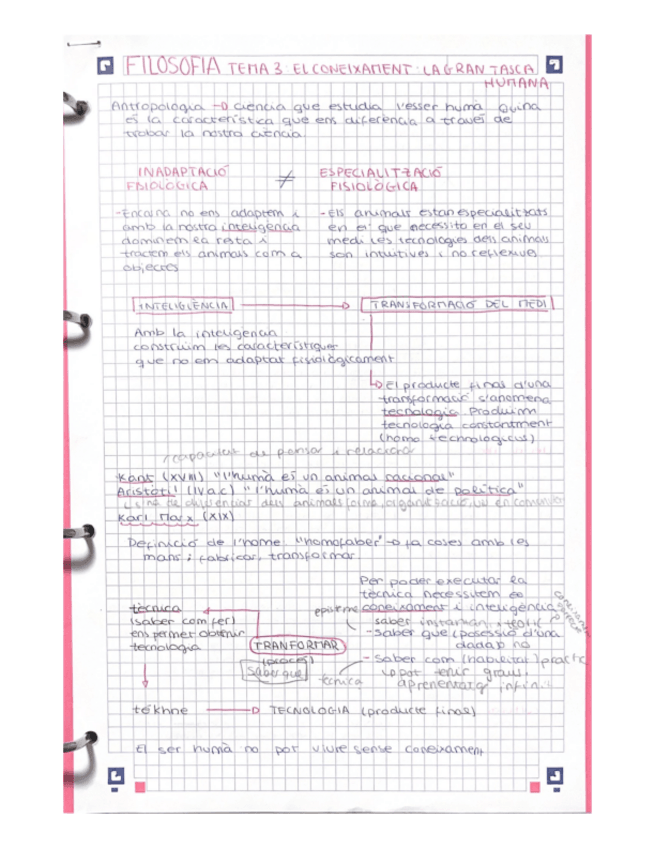 FILOSOFIA TEMA 3: EL CONEIXAMENT: LA GRAN TASCA
HUMANA
Antropologia → ciència que estudia l'esser humà quina
és la característica que ens diferència a través de
trobar la nostra ciència
INADAPTACIÓ
FISIOLÒGICA
≠
ESPECIALITZACIÓ
FISIOLÒGICA
- Encaina no ens adaptem i
amb la nostra inteligència
dominem la resta i
tractem els animals com a
objectes
- Els animals estan especialitzats
en el que necessita en el seu
medi les tecnologies dels animals
son intuitives i no reflexives
INTELIGÈNCIA → TRANSFORMACIÓ DEL MEDI
Amb la inteligència
construim les característiques
que no em adaptat fisiològicament
El producte final d'una
transformació s'anomena
tecnologia. Produim
tecnologia constantment
(homo tecnologicus)
capacitat de pensar i relacionar
Kant (XVIII) "l'humà és un animal racional"
Aristòtil (IV a.c) "l'humà és un animal de política"
dels animals
Karl Marx (XIX)
Definició de l'home "homofaber" → fa coses amb les
mans i fabricar, transformar
Per poder executar la
tècnica necessitem el
episteme coneixament i inteligència
tècnica
(saber com fer)
ens permet obtenir
tecnologia
TRANFORMAR
(procés)
Saber que
- Saber que (possesió d'una
dada) o no
- Saber com (habilitat)
tècnica
pot tenir graus,
aprenentatge infinit
tékhne → TECNOLOGIA (producte final)
El ser humà no pot viure sense coneixament